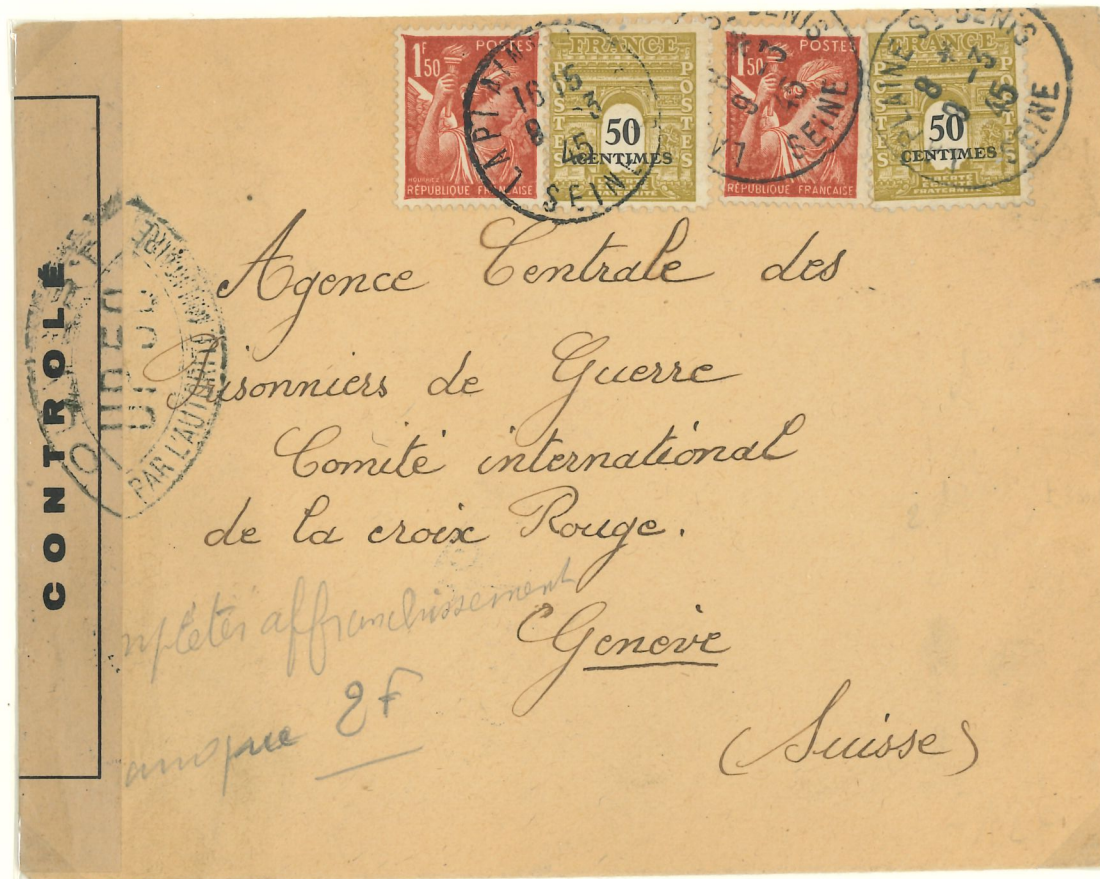 1F50 POSTES
RÉPUBLIQUE FRANÇAISE
FRANCE
POSTES POSTES
50
CENTIMES
1F50 POSTES
RÉPUBLIQUE FRANÇAISE
FRANCE
POSTES POSTES
50
CENTIMES
LA PLAINE
16 15
8 -3
45
SEINE
DENIS
SEINE
PLAINE ST DENIS
8
8 -3
45
SEINE
CONTROLE
PAR L'AUTORITÉ MILITAIRE
Agence Centrale des
Prisonniers de Guerre
Comité international
de la croix Rouge.
Genève
(Suisse)
affranchissement
manque 2F